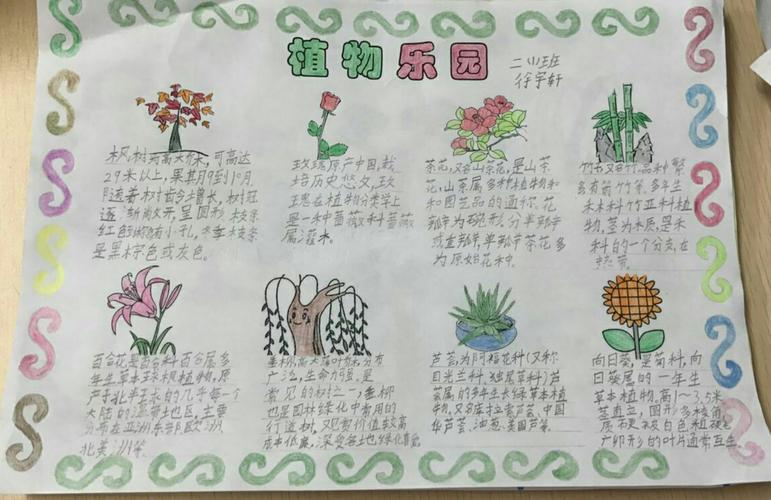 植物乐园
二(1)班
徐宇轩
枫树为高大乔木，可高达
29米以上，果其月9到10月
随着树龄增长，树冠
逐渐敞开，呈圆形。枝条
红色 有小孔，冬季枝条
是黑棕色或灰色。
玫瑰原产中国，栽
培历史悠久，玫
瑰在植物分类学上
是一种蔷薇科蔷薇
属灌木。
茶花，又名山茶花，是山茶
花，山茶属多种植物和
和园艺品的通称。花
瓣为碗形，分单瓣
或重瓣，单瓣茶花多
为原始花种。
竹 又名竹，品种繁
多有箭竹等，多年生
禾本科竹亚科植
物，茎为木质，是禾
科的一个分支，在
热带。
百合花是百合科百合属多
年生草本球根植物，原
产于北半球的几乎每一个
大陆的温带地区，主要
分布在亚洲东部、欧洲、
北美洲等。
垂柳，高大落叶乔木，分布
广泛，生命力强，是
常见的树之一，垂柳
也是园林绿化中常用的
行道树，观赏价值较高
成本低廉，深受各地绿化喜爱
芦荟，为阿福花科(又称
日光兰科、独尾草科)芦
荟属的多年生常绿草本植
物，又名库拉索芦荟、中国
华芦荟、油葱、美国芦荟。
向日葵，是菊科，向
日葵属的一年生
草本植物，高1~3.5米
茎直立，圆形多棱角
质 被白色粗硬毛
广卵形的叶片通常互生